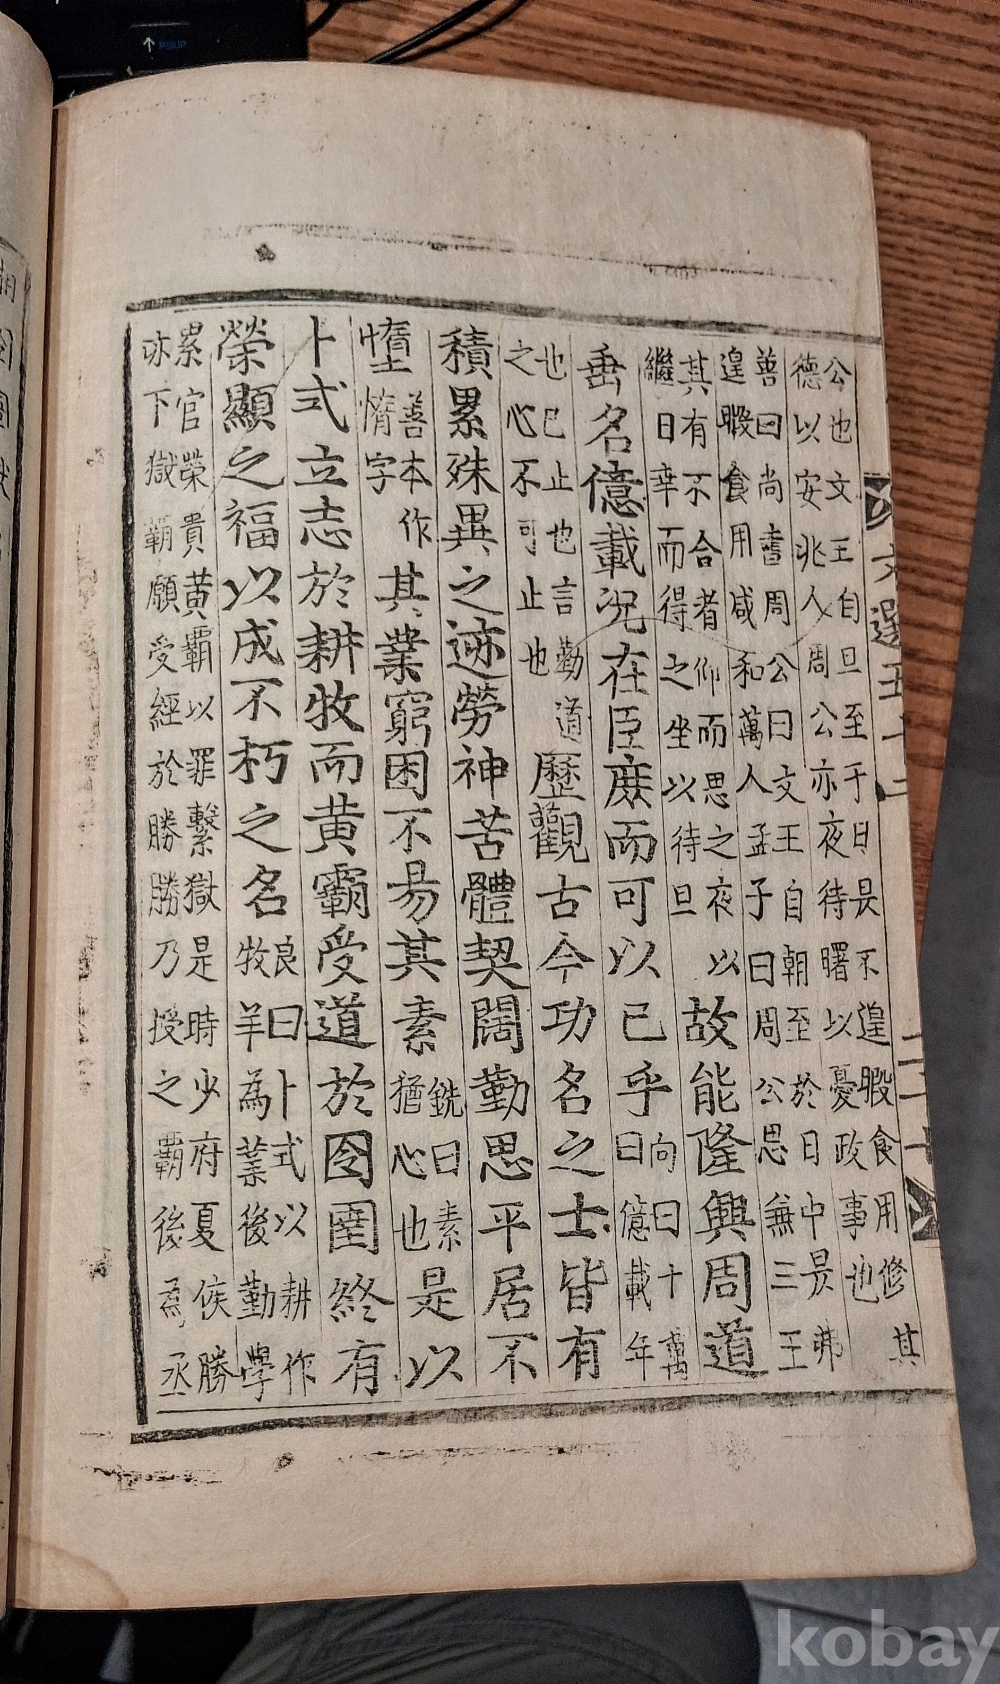 文選五十二
公也文王自旦至于日昃不遑暇食用修其
德以安兆人周公亦夜待曙以憂政事也
善曰尚書周公曰文王自朝至於日中昃弗
遑暇食用咸和萬人孟子曰周公思兼三王
其有不合者仰而思之夜以
繼日幸而得之坐以待旦
故能隆興周道
垂名億載況在臣庶而可以已乎
向曰十萬
曰億載年
也已止也言勤道
之心不可止也
歷觀古今功名之士皆有
積累殊異之迹勞神苦體契闊勤思平居不
墯
善本作
惰字
其業窮困不易其素
銑曰素
猶心也
是以
卜式立志於耕牧而黄霸受道於囹圄終有
榮顯之福以成不朽之名
良曰卜式以耕作
牧羊為業後勤學
累官榮貴黄霸以罪繫獄是時少府夏侯勝
亦下獄霸願受經於勝勝乃授之霸後為丞
kobay